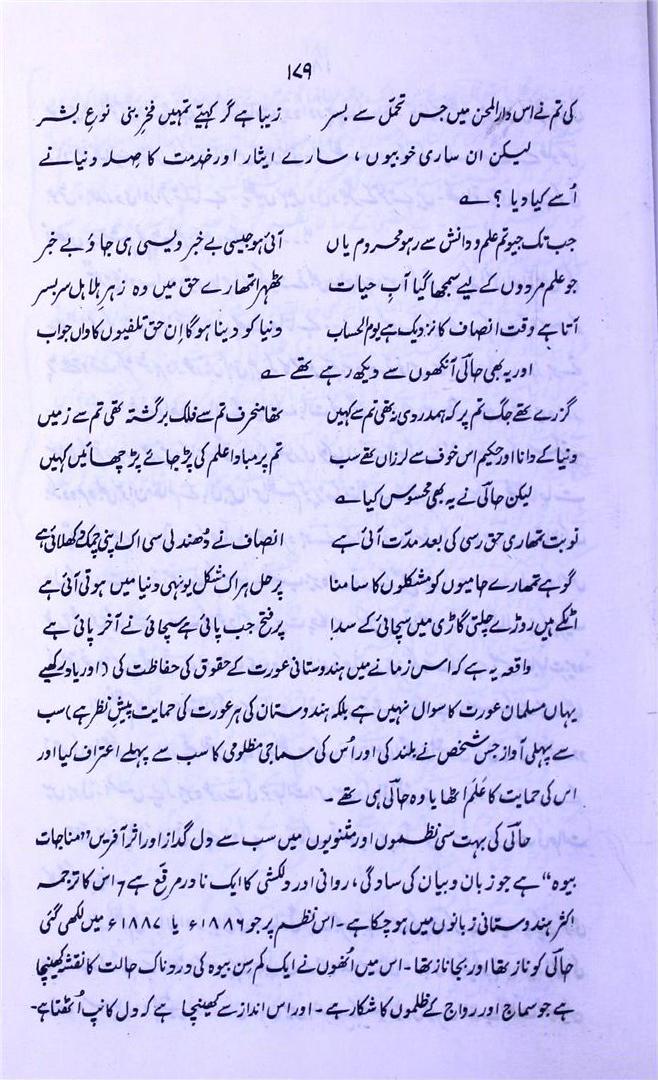 ۱۷۹
کی تم نے اس دار المحن میں جس تحمّل سے بسر زیبا ہے گر کہیے تمہیں فخرِ بنی نوعِ بشر
لیکن ان ساری خوبیوں، سارے ایثار اور خدمت کا صلہ دنیا نے
اُسے کیا دیا؟ ؎
جب تک جیو تم علم و دانش سے رہو محروم یاں آئی ہو جیسی بے خبر ویسی ہی جاؤ بے خبر
جو علم مردوں کے لیے سمجھا گیا آبِ حیات ٹھہرا تمھارے حق میں وہ زہر ہلاہل سر بسر
آتا ہے وقت انصاف کا نزدیک ہے یوم الحساب دنیا کو دینا ہوگا اِن حق تلفیوں کا واں جواب
اور یہ بھی حالیؔ آنکھوں سے دیکھ رہے تھے ؎
گزرے تھے جگ تم پر کہ ہمدردی نہ تھی تم سے کہیں تھا منحرف تم سے فلک برگشتہ تھی تم سے زمیں
دنیا کے دانا اور حکیم اس خوف سے لرزاں تھے سب تم پر مبادا علم کی پڑ جائے پرچھائیں کہیں
لیکن حالیؔ نے یہ بھی محسوس کیا ؎
نوبت تمھاری حق رسی کی بعد مدّت آئی ہے انصاف نے دُھندلی سی اک اپنی چمک دکھلائی ہے
گو ہے تمھارے حامیوں کو مشکلوں کا سامنا پر حل ہر اک مشکل یونہی دنیا میں ہوتی آئی ہے
اٹکے ہیں روڑے چلتی گاڑی میں سچائی کے سدا پر فتح جب پائی ہے سچائی نے آخر پائی ہے
واقعہ یہ ہے کہ اس زمانے میں ہندوستانی عورت کے حقوق کی حفاظت کی (اور یاد رکھیے
یہاں مسلمان عورت کا سوال نہیں ہے بلکہ ہندوستان کی ہر عورت کی حمایت پیشِ نظر ہے) سب
سے پہلی آواز جس شخص نے بلند کی اور اُس کی سماجی مظلومی کا سب سے پہلے اعتراف کیا اور
اس کی حمایت کا عَلَم اٹھایا وہ حالیؔ ہی تھے۔
حالیؔ کی بہت سی نظموں اور مثنویوں میں سب سے دل گداز اور اثر آفریں "مناجات
بیوہ" ہے جو زبان و بیان کی سادگی، روانی اور دلکشی کا ایک نادر مرقع ہے، اس کا ترجمہ
اکثر ہندوستانی زبانوں میں ہو چکا ہے۔ اس نظم پر جو ۱۸۸۶ء یا ۱۸۸۷ء میں لکھی گئی
حالیؔ کو ناز تھا اور بجا ناز تھا۔ اس میں اُنھوں نے ایک کم سِن بیوہ کی دردناک حالت کا نقشہ کھینچا
ہے جو سماج اور رواج کے ظلموں کا شکار ہے۔ اور اس انداز سے کھینچا ہے کہ دل کانپ اُٹھتا ہے۔